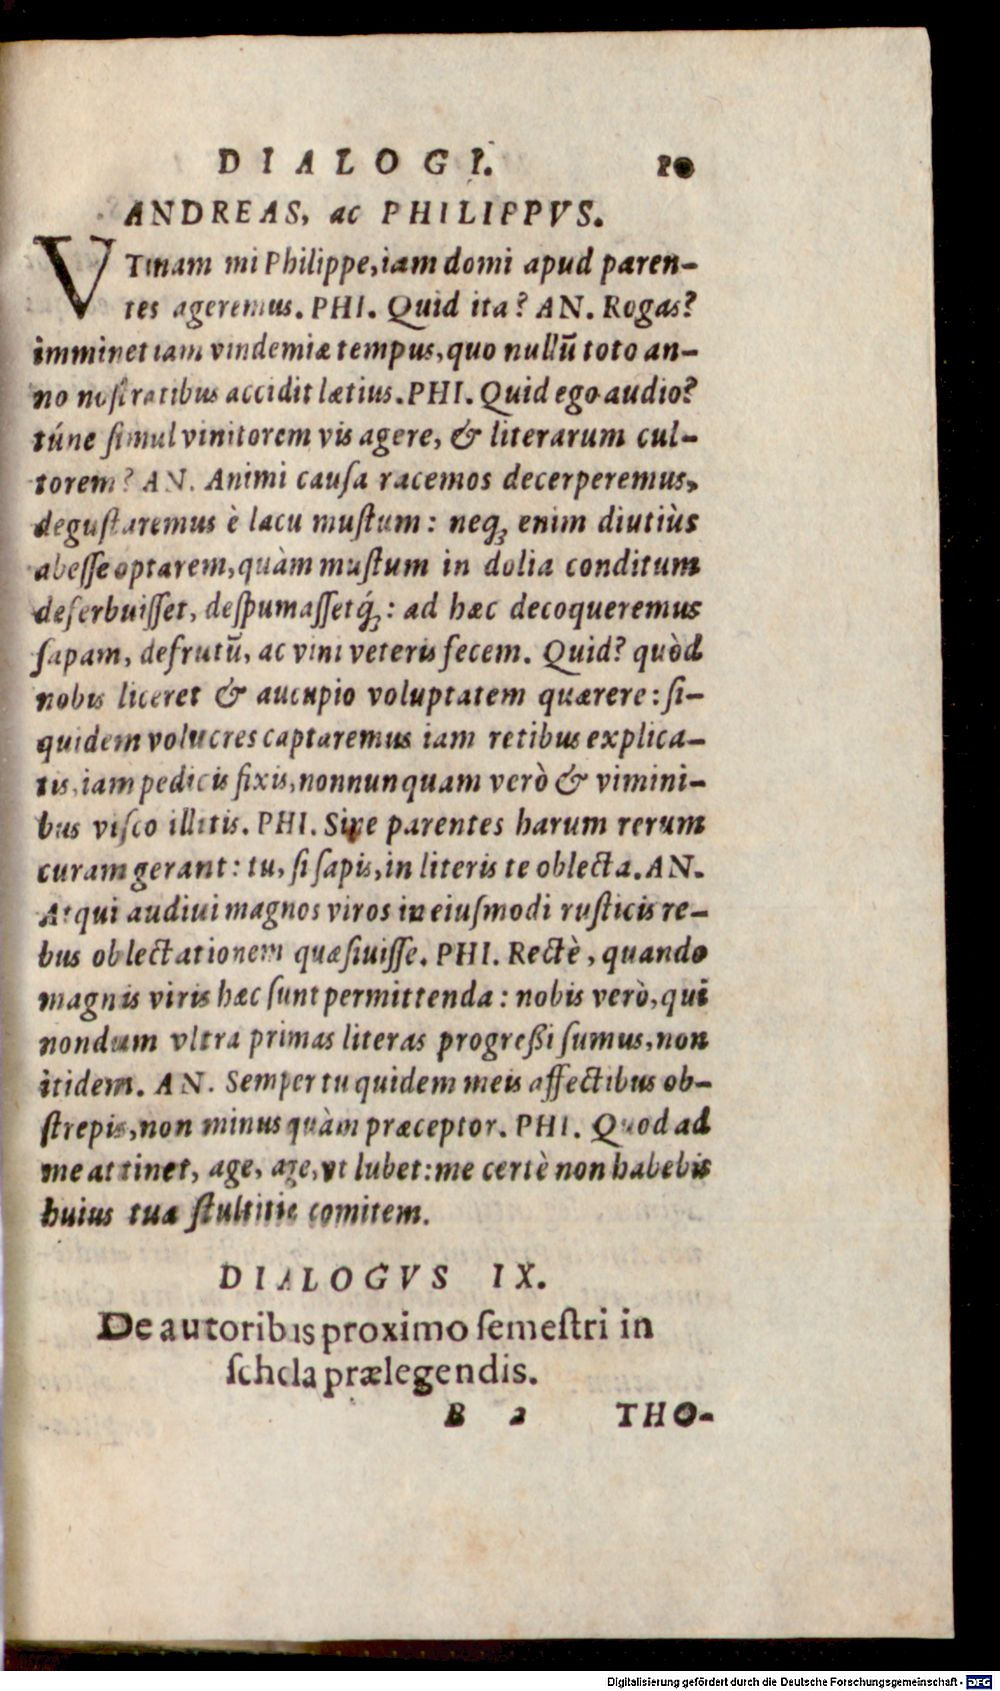 DIALOGI. 10
ANDREAS, ac PHILIPPVS.
VTinam mi Philippe, iam domi apud paren-
tes ageremus. PHI. Quid ita? AN. Rogas?
imminet iam vindemiæ tempus, quo nullũ toto an-
no nostratibus accidit lætius. PHI. Quid ego audio?
túne simul vinitorem vis agere, & literarum cul-
torem? AN. Animi causa racemos decerperemus,
degustaremus è lacu mustum: neqꝫ enim diutiùs
abesse optarem, quàm mustum in dolia conditum
deferbuisset, despumassetq́ꝫ: ad hæc decoqueremus
sapam, defrutũ, ac vini veteris fecem. Quid? quòd
nobis liceret & aucupio voluptatem quærere: si-
quidem volucres captaremus iam retibus explica-
tis, iam pedicis fixis, nonnunquam verò & vimini-
bus visco illitis. PHI. Sine parentes harum rerum
curam gerant: tu, si sapis, in literis te oblecta. AN.
Atqui audiui magnos viros in eiusmodi rusticis re-
bus oblectationem quæsiuisse. PHI. Rectè, quando
magnis viris hæc sunt permittenda: nobis verò, qui
nondum vltra primas literas progreßi sumus, non
itidem. AN. Semper tu quidem meis affectibus ob-
strepis, non minus quàm præceptor. PHI. Quod ad
me attinet, age, age, vt lubet: me certè non habebis
huius tuæ stultitie comitem.
DIALOGVS IX.
De autoribus proximo semestri in
schola prælegendis.
B 2 THO-
Digitalisierung gefördert durch die Deutsche Forschungsgemeinschaft - DFG